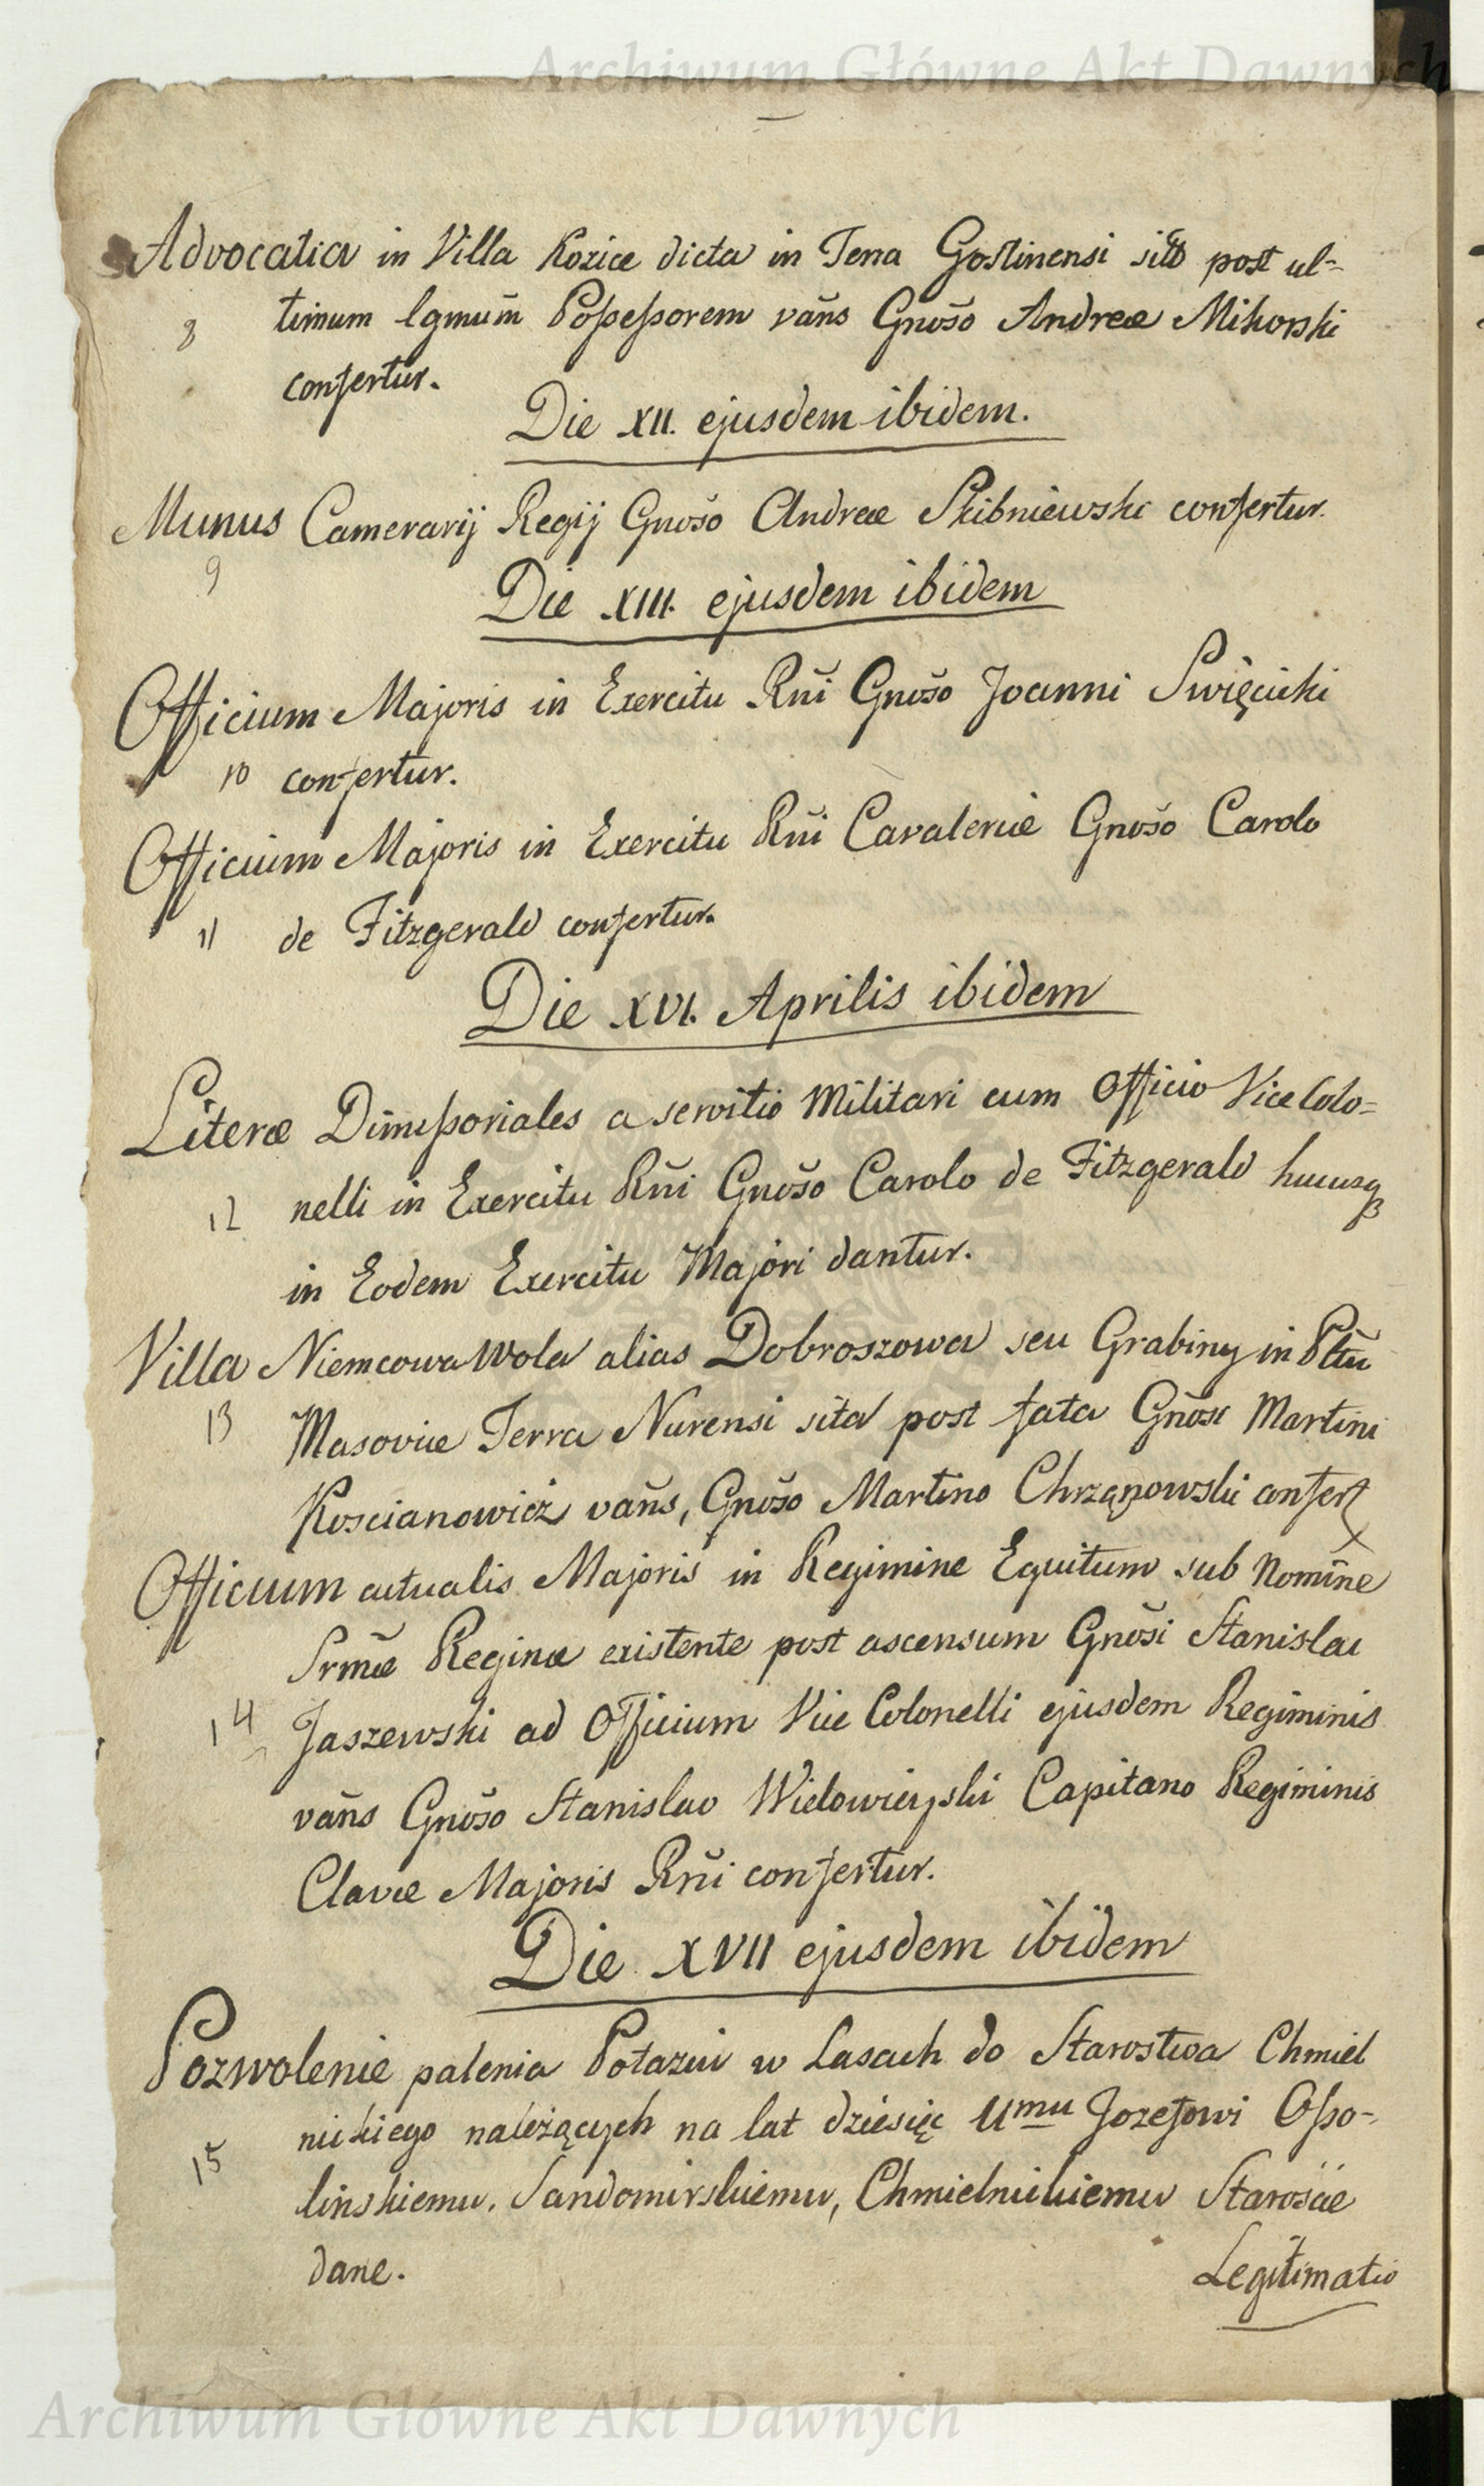 Archiwum Główne Akt Dawnych
Advocatia in Villa Kozice dicta in Terra Gostinensi sita post ul-
8 timum lgmum̃ Possessorem vañs Gnošo Andreæ Mikorski
confertur.
Die XII. ejusdem ibidem.
Munus Camerarij Regij Gnošo Andreæ Skibniewski confertur.
9
Die XIII. ejusdem ibidem
Officium Majoris in Exercitu Rñi Gnošo Joanni Swięcicki
10 confertur.
Officium Majoris in Exercitu Rñi Cavaleriæ Gnošo Carolo
11 de Fitzgerald confertur.
Die XVI. Aprilis ibidem
Literæ Dimissoriales a servitio Militari cum Officio Vice Colo=
12 nelli in Exercitu Rñi Gnošo Carolo de Fitzgerald hucusq
in Eodem Exercitu Majori dantur.
Villa Niemcowa Wola alias Dobroszowa seu Grabiny in Pltũ
13 Masoviæ Terra Nurensi sita post fata Gnõsi Martini
Koscianowicz vañs, Gnošo Martino Chrząnowski confert
Officium actualis Majoris in Regimine Equitum sub Nomĩne
Srm̃æ Reginæ existente post ascensum Gnõsi Stanislai
14 Jaszewski ad Officium Vice Colonelli ejusdem Regiminis
vañs Gnošo Stanislao Wielowieyski Capitano Regiminis
Clavæ Majoris Rñi confertur.
Die XVII ejusdem ibidem
Pozwolenie palenia Potaziu w Lasach do Starostwa Chmiel
15 nickiego należących na lat dziesięc Umu Jozefowi Osso-
linskiemu, Sandomirskiemu, Chmielnickiemu Starosćie
dane.
Legitimatio
Archiwum Główne Akt Dawnych